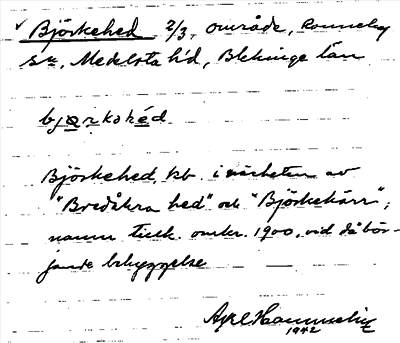 √ Björkehed 2/3, område, Ronneby
sn, Medelsta hd, Blekinge län
bjørkohéd
Björkehed, kb. i närheten av
"Bredåkra hed" och "Björkekärr";
namn tillk. omkr. 1900, vid då bör-
jande bebyggelse
1942